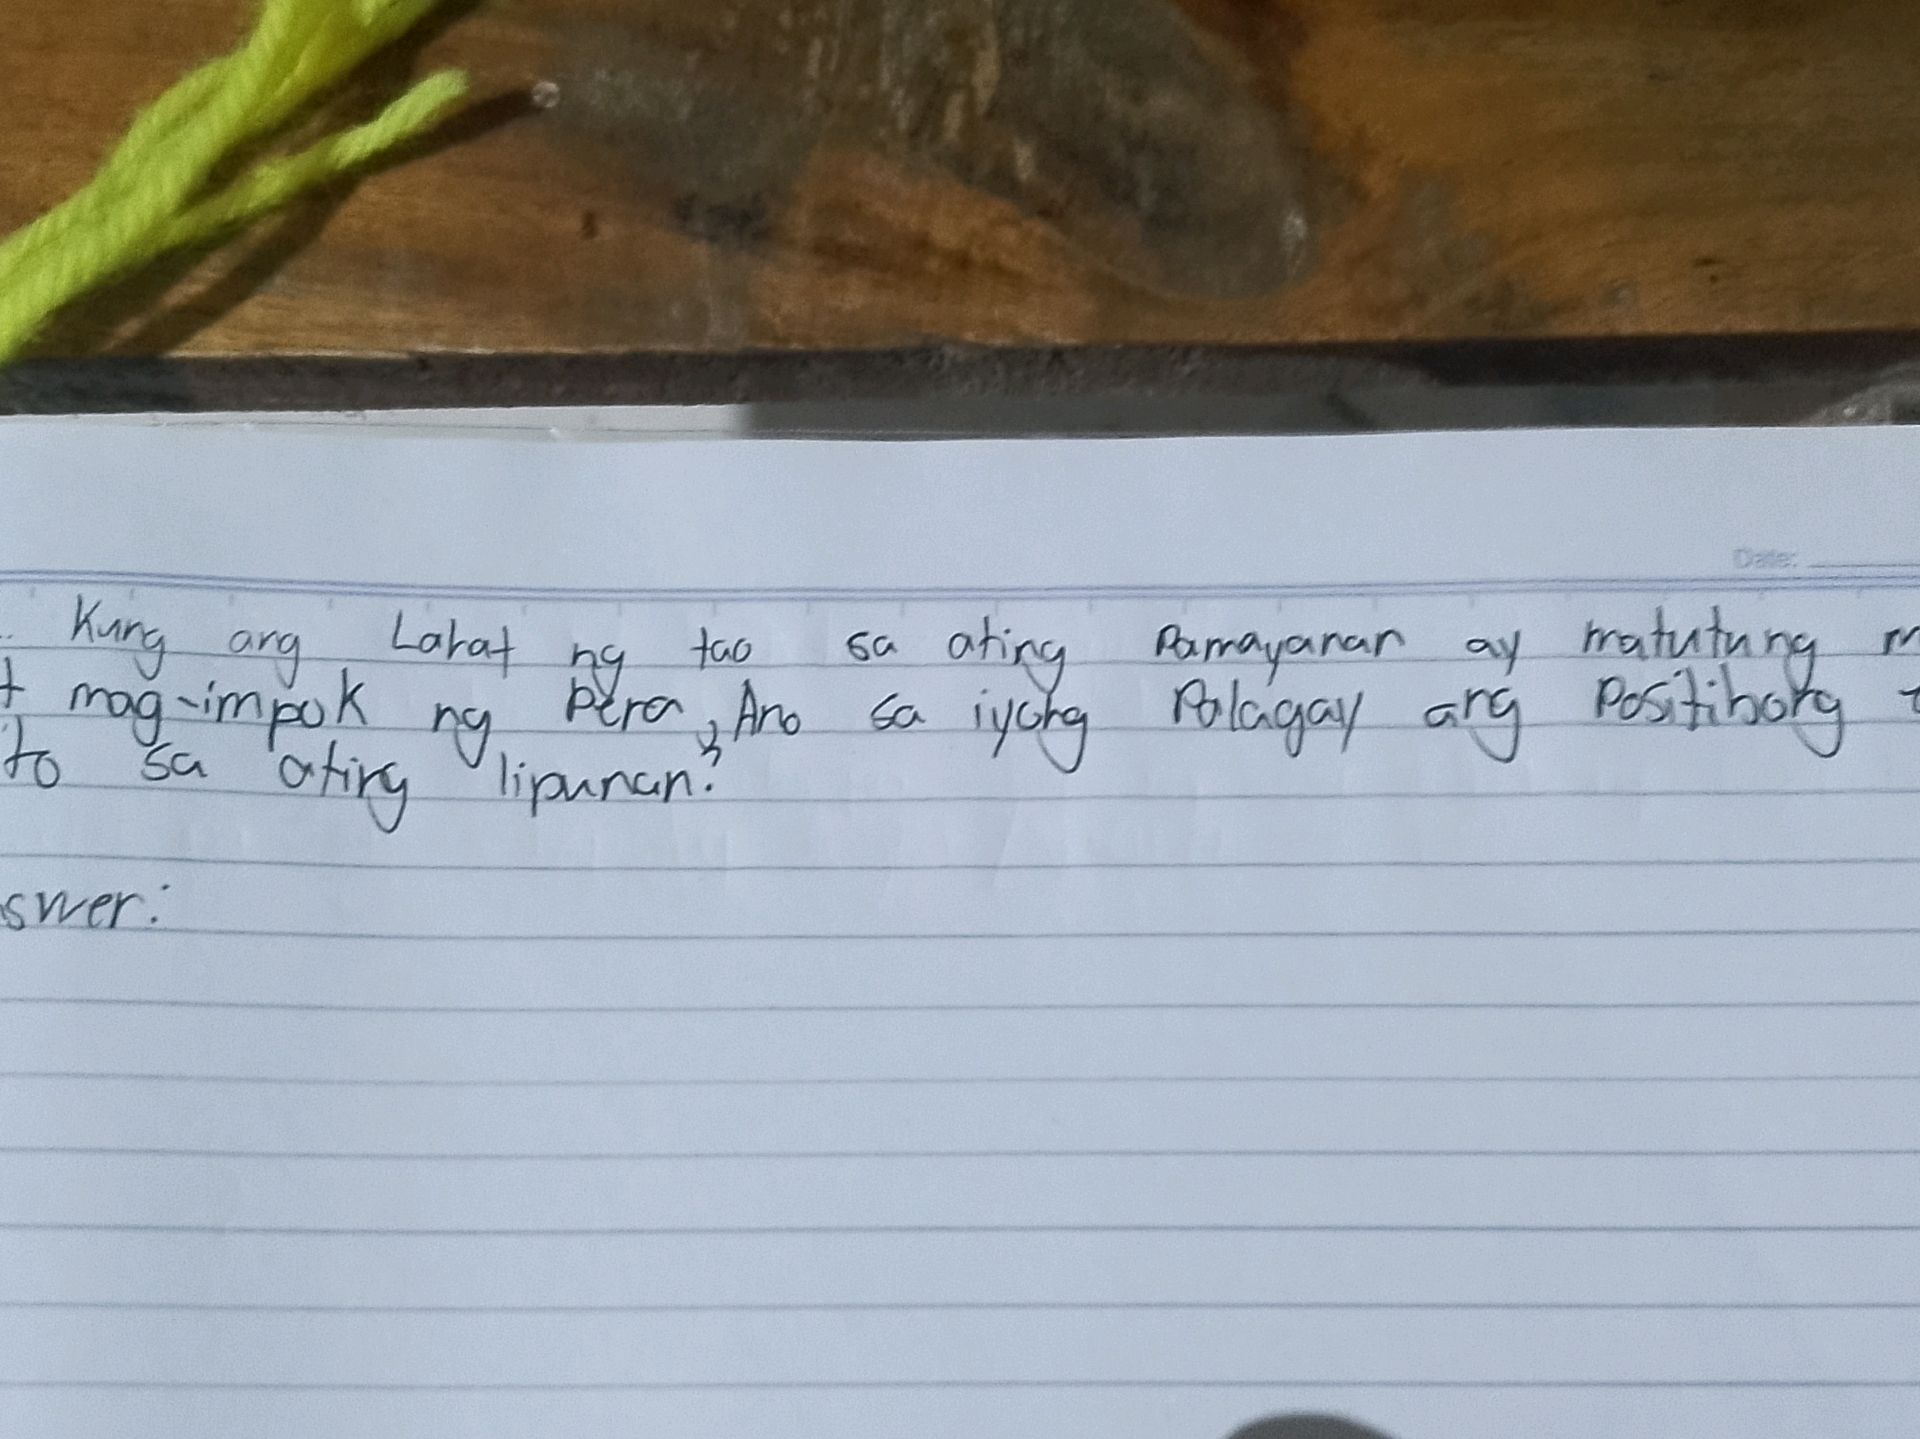 Date:
Kung ang Lahat ng tao sa ating Pamayanan ay matutung
mag-impok ng Pera, Ano sa iyong Palagay ang Positibong
to sa ating lipunan?
swer: